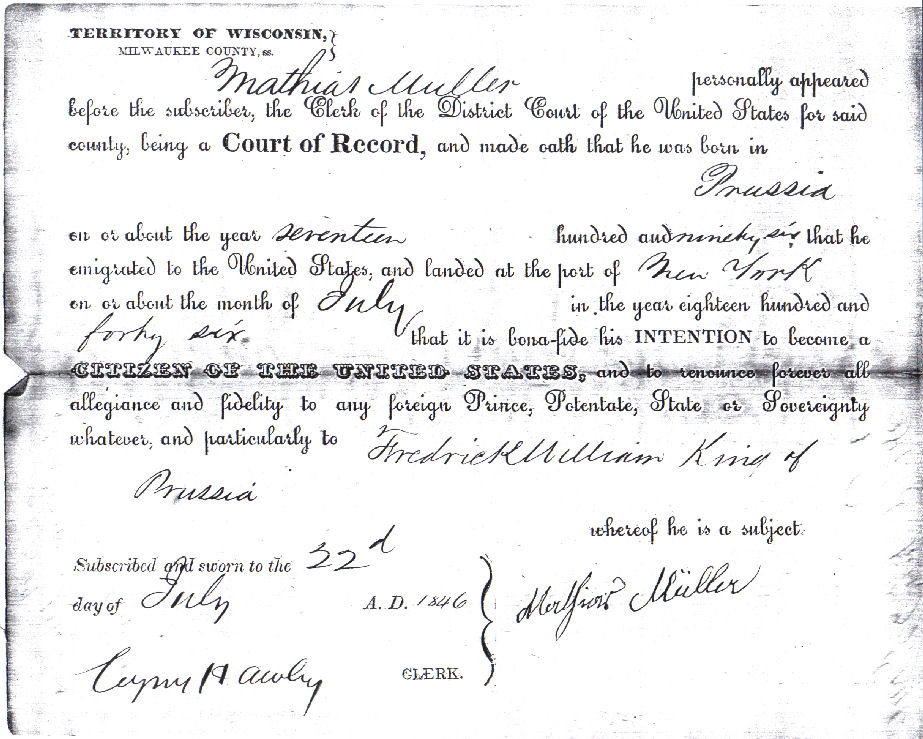 TERRITORY OF WISCONSIN,}
MILWAUKEE COUNTY, ss.
Mathias Muller personally appeared
before the subscriber, the Clerk of the District Court of the United States for said
county, being a Court of Record, and made oath that he was born in
Prussia
on or about the year seventeen hundred and ninety six, that he
emigrated to the United States, and landed at the port of New York
on or about the month of July in the year eighteen hundred and
forty six. that it is bona-fide his INTENTION to become a
CITIZEN OF THE UNITED STATES, and to renounce forever all
allegiance and fidelity to any foreign Prince, Potentate, State or Sovereignty
whatever, and particularly to Fredrick William King of
Prussia
whereof he is a subject.
Subscribed and sworn to the 22d
day of July A. D. 1846
Mathias Müller
Cyrus Hawley CLERK.